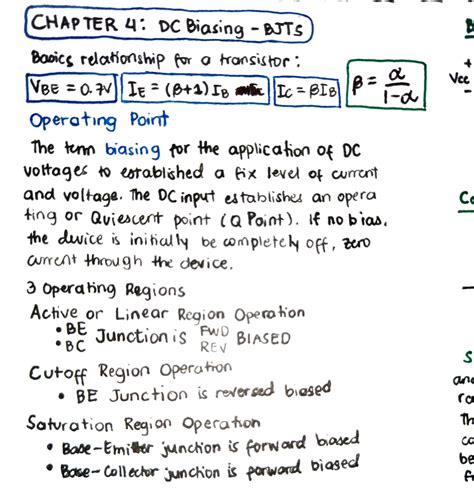 CHAPTER 4: DC Biasing - BJTs
Basics relationship for a transistor:
VBE = 0.7V IE = (β+1) IB IC = βIB β = α / 1-α
Operating Point
The term biasing for the application of DC
voltages to established a fix level of current
and voltage. The DC input establishes an opera
ting or Quiescent point (Q Point). if no bias,
the device is initially be completely off, zero
current through the device.
3 Operating Regions
Active or Linear Region Operation
• BE Junction is FWD BIASED
• BC REV
Cutoff Region Operation
• BE Junction is reversed biased
Saturation Region Operation
• Base-Emitter junction is forward biased
• Base-Collector junction is forward biased
+
Vcc
Co
S
and
Th
co
be